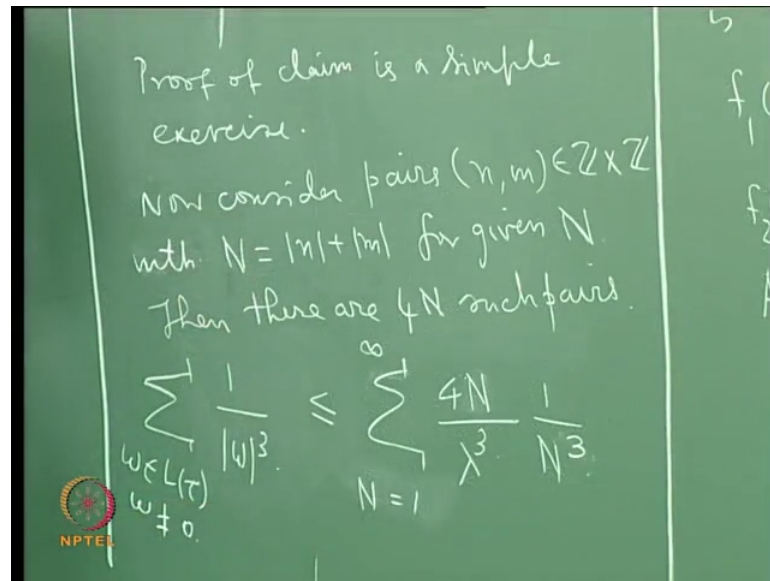 Proof of claim is a simple
exercise.
Now consider pairs (n, m) ∈ ℤ × ℤ
with N = |n| + |m| for given N.
Then there are 4N such pairs.
∑_{ω ∈ L(τ), ω ≠ 0} 1/|ω|³ ≤ ∑_{N=1}^{∞} 4N/λ³ 1/N³.
f₁(
f₂
NPTEL